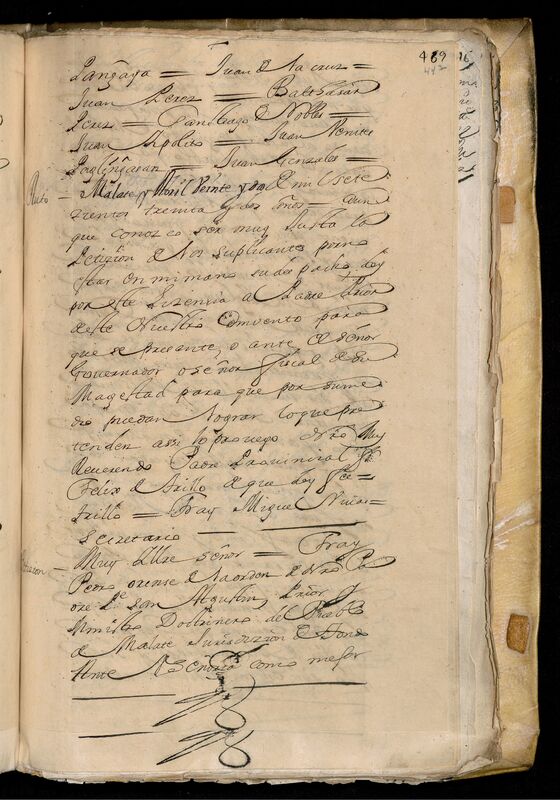 489
443
Pangaya = Juan de la cruz =
Juan Perez = Balthasar
Perez = Santiago de Nobles =
Juan Ypolito = Juan Venites
= Juan Gonzales =
Auto – Malate y Abril Veinte y dos de mil sete
zientos treinta y dos años = aun
que conozco ser muy Justa la
Petizion de los suplicantes por no
star en mi mano su despacho doy
por este Lizencia a Padre Prior
deste Nuestro Convento para
que se presente, o ante el señor
Governador o señor fiscal de su
Magestad para que por su me
dio puedan lograr lo que pre
tenden assi lo proveyo Nro Muy
Reverendo Padre Provincial fr.
Felix de Trillo de que doy fee =
Trillo = Fray Miguel Nuñes =
Secretario
Peticion – Muy Illre señor = Fray
Pedro orense de la orden de Nro Pa
dre Sn. san Agustin, Prior y
Ministro Doctrinero del Pueblo
de Malate Jurisdizion de Tondo
Ante Vsenoria como mejor